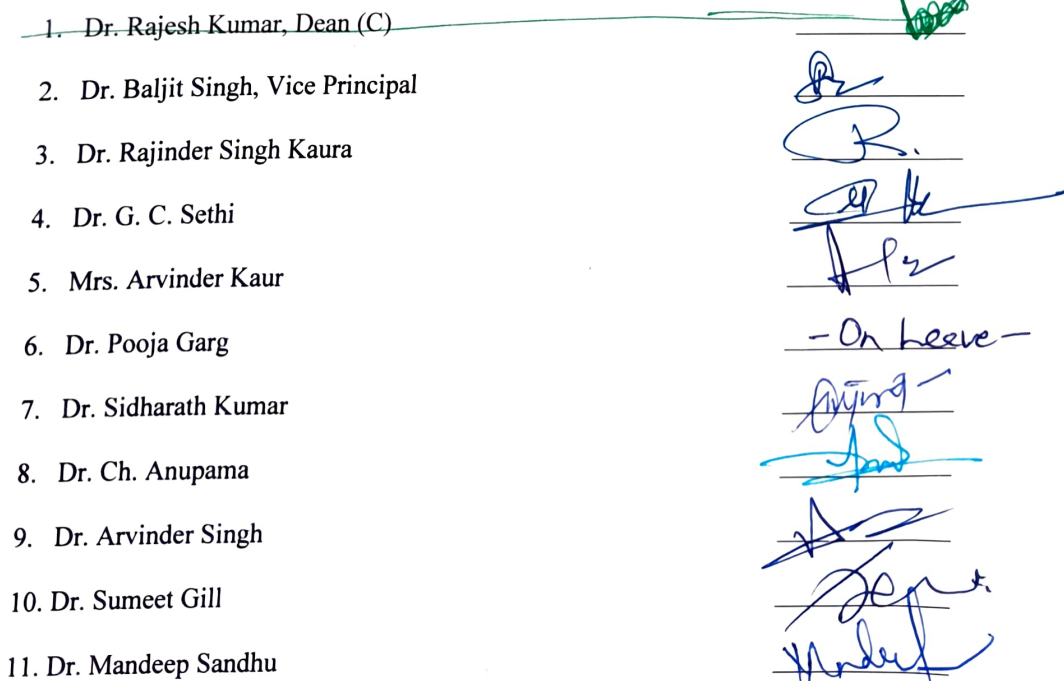 1. Dr. Rajesh Kumar, Dean (C)
2. Dr. Baljit Singh, Vice Principal
3. Dr. Rajinder Singh Kaura
4. Dr. G. C. Sethi
5. Mrs. Arvinder Kaur
6. Dr. Pooja Garg - On Leave -
7. Dr. Sidharath Kumar
8. Dr. Ch. Anupama
9. Dr. Arvinder Singh
10. Dr. Sumeet Gill
11. Dr. Mandeep Sandhu